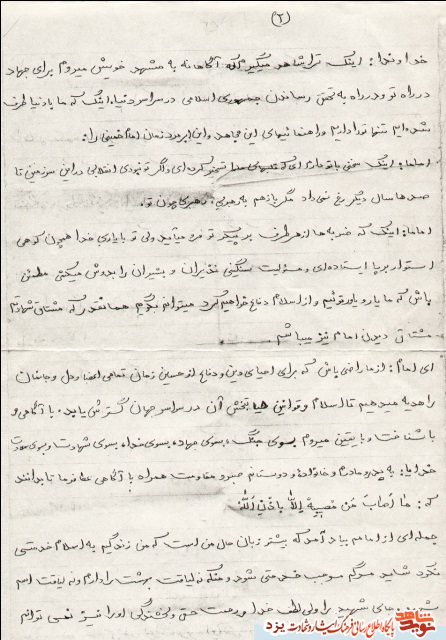 (۲)
خداوندا: اینک ترا شاهد میگیرم که آگاهانه به مشهد خویش میروم برای جهاد
در راه تو و در راه به تحقق رساندن جمهوری اسلامی در سراسر دنیا. اینک که ما با دنیا طرف
شده ایم تنها تو را داریم و راهنمائیهای این مجاهد و این ابرمرد زمان امام خمینی را.
اماما: اینک سخنی با تو دارم ای که قلبهای ما را تسخیر کرده ای و اگر تو نبودی انقلابی در این سرزمین تا
صدها سال دیگر رخ نمی داد مگر باز هم به رهبری، رهبری چون تو.
اماما: اینک که ضربه ها از هر طرف بر پیکر تو فرود میآید ولی تو با یاری خدا همچون کوهی
استوار بر پا ایستاده ای و مسئولیت سنگین نذیران و بشیران را بدوش میکشی مطمئن
باش که ما یار و یاور توئیم و از اسلام دفاع خواهیم کرد میتوانم بگویم همانقدر که مشتاق شهادتم
مشتاق دیدن امام نیز میباشم
ای امام: از ما راضی باش که برای احیای دین و دفاع از حسین زمان تمامی اعضا و دل و جانمان
را هدیه میدهیم تا اسلام و قوانین حیا بخش آن در سراسر جهان گسترش یابد. با آگاهی و
با شناخت و با یقین میروم بسوی جنگ، بسوی جهاد، بسوی خدا، بسوی شهادت و بسوی
خدایا: به پدر و مادرم و خانواده و دوستانم صبر و مقاومت همراه با آگاهی عطا فرما تا بدانند
که: ما اصاب من مصیبة الا باذن الله
جمله ای از امامم بیاد آمد که بیشتر زبان حال من است که من زندگیم به اسلام خدمتی
نکرد شاید مرگم موجب خدمتی شود و منکه نه لیاقت بهشت را دارم و نه لیاقت اسم
شهید را ولی لطف خدا و رحمت حق و بخشندگی او را نیز نمی توانم
نوید شاهد
پایگاه اطلاع رسانی فرهنگ ایثار و شهادت یزد